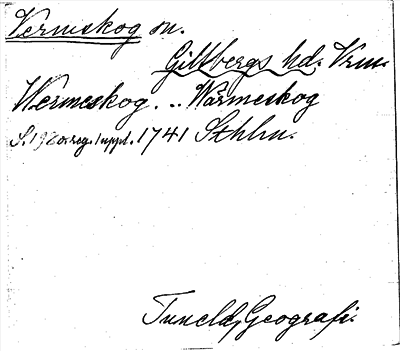 Vermskog sn.
Gillbergs hd. Vrml.
Wermeskog. .. Wärmeskog
S. 198 o. reg. 1 uppl. 1741 Sthlm.
Tunelds Geografi.